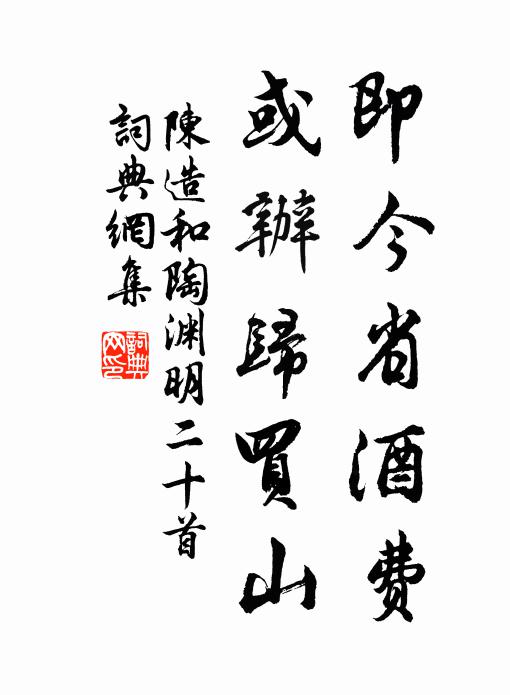 即今省酒费
或辦歸買山
陳造和陶渊明二十首
詞典網集
詞典
网印